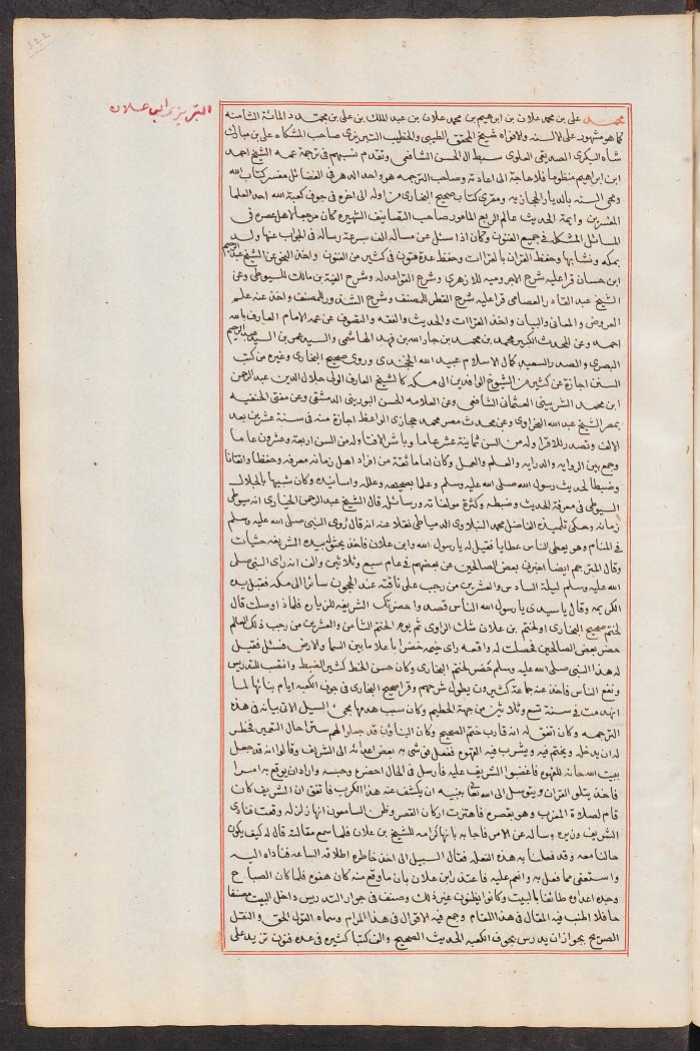 322
محمد على بن محمد علان بن ابراهيم بن محمد علان بن عبد الملك بن على بن مجدد المائة الثامنه
كما هو مشهور على الالسنه والافواه شيخ المحقق الطيبى والخطيب التبريزى صاحب المشكاه على بن مبارك
شاه البكرى الصديقى العلوى سبط ال الحسن الشافعى وتقدم نسبهم فى ترجمة عمه الشيخ احمد
ابن ابراهيم منظوما فلا حاجة الى اعادته وصاحب الترجمه هو واحد الدهر فى الفضائل مفسر كتاب الله
ومحى السنه بالديار الحجازيه ومقرى كتاب صحيح البخارى من اوله الى اخره فى جوف كعبة الله احد العلما
المفسرين وايمة الحديث عالم الربع المامور صاحب التصانيف الشهيره كان مرجعا لاهل عصره فى
المسائل المشكله فى جميع الفنون وكان اذا سئل عن مساله الف بسرعة رساله فى الجواب عنها ولد
بمكه ونشابها وحفظ القران بالقراات وحفظ عدة متون فى كثير من الفنون واخذ النحو عن الشيخ عبد الرحيم
ابن حسان قرا عليه شرح الاجروميه للازهرى وشرح القواعد له وشرح الفية بن مالك للسيوطى وعن
الشيخ عبد القادر العصامى قرا عليه شرح القطر للمصنف وشرح الشذور للمصنف واخذ عنه علم
العروض والمعانى والبيان واخذ القراات والحديث والفقه والتصوف عن عمه الامام العارف بالله
احمد وعن المحدث الكبير محمد بن محمد بن جار الله بن فهد الهاشمى والسيد عمر بن السيد عبد الرحيم
البصرى والصدر السعيد كمال الاسلام عبيد الله الخجندى وروى صحيح البخارى وغيره من كتب
السنن اجازة عن كثير من الشيوخ الوافدين الى مكه كالشيخ العارف الولى جلال الدين عبد الرحمن
ابن محمد الشربينى العثمانى الشافعى وعن العلامه الحسن البورينى الدمشقى وعن مفتى الحنفيه
بمصر الشيخ عبد الله النحراوى وعن محدث مصر محمد حجازى الواعظ اجازة منه فى سنة عشرين بعد
الالف وتصدر للاقرا وله من السن ثمانية عشر عاما وباشر الافتا وله من السن اربعة وعشرون عاما
وجمع بين الروايه والدرايه والعلم والعمل وكان اماما ثقة من افراد اهل زمانه معرفه وحفظا واتقانا
وضبطا لحديث رسول الله صلى الله عليه وسلم وعلما بصحيحه وعلله واسانيده وكان شبيها بالجلال
السيوطى فى معرفة الحديث وضبطه وكثرة مولفاته ورسائله قال الشيخ عبد الرحمن الخيارى انه سيوطى
زمانه وحكى تلميذه الفاضل محمد النبلاوى الدمياطى نقلا عنه انه قال رؤى النبى صلى الله عليه وسلم
فى المنام وهو يعطى الناس عطايا فقيل له يا رسول الله وابن علان فاخذ يحثو له بيده الشريفه حثيات
وقال المترجم ايضا اخبرنى بعض الصالحين عن بعضهم فى عام سبع وثلاثين والف انه راى النبى صلى
الله عليه وسلم ليلة السادس والعشرين من رجب على ناقته عند الحجون سائرا الى مكه فقبل يده
الكريمه وقال يا سيدى يا رسول الله الناس قصدوا حضرتك الشريفه للزياره فلماذا وصلت قال
لختم صحيح البخارى او لختم بن علان شك الراوى ثم يوم الختم الثامن والعشرين من رجب ذلك العام
حضر بعض الصالحين فحصلت له واقعه راى خيمه خضرا باعلا ما بين السما والارض فسئل فقيل
له هذا النبى صلى الله عليه وسلم حضر لختم البخارى وكان حسن الخط كثير الضبط وانتصب للتدريس
ونفع الناس فاخذ عنه جماعة كثيرون يطول شرحهم وقرا صحيح البخارى فى جوف الكعبه ايام بنائها لما
انهدمت فى سنة تسع وثلاثين من جهة الحطيم وكان سبب هدمها مجى السيل الاتى بيانه فى هذه
الترجمه وكان اتفق له انه قارب ختم الصحيح وكان البناؤن قد جعلوا لهم سترا حال التعمير فخطر
له ان يدخله ويختم فيه ويشرب فيه القهوه ففعل فوشى به بعض اعدائه الى الشريف وقالوا انه قد جعل
بيت الله حانة للقهوه فاغضبوا الشريف عليه فارسل فى الحال احضره وحبسه واراد ان يوقع به امرا
فاخذ يتلو القران ويتوسل الى الله تعالى بنبيه ان يكشف عنه هذا الكرب فاتفق ان الشريف كان
قام لصلاة المغرب وهو بقصره فاهتزت اركان القصر وظن السامعون انها زلزله وقعت فنادى
الشريف وزيره وساله عن الامر فاجابه بانها كرامه للشيخ بن علان فلما سمع مقالته قال له كيف يكون
حالنا معه وقد فعلنا به هذه الفعله فقال السبيل الى اخذ خاطره اطلاقه الساعه فناداه اليه
واستعفى مما فعل به وانعم عليه فاعتذر ابن علان بان ما وقع منه كان هفوه فلما كان الصباح
وجده اعداوه طائفا بالبيت وكانوا يظنون غير ذلك وصنف فى جواز التدريس داخل البيت مصنفا
حافلا اطنب فيه المقال فى هذا المقام وجمع فيه الاقوال فى هذا المرام وسماه القول الحق والنقل
الصريح بجواز ان يدرس بجوف الكعبه الحديث الصحيح والف كتبا كثيره فى عدة فنون تزيد على